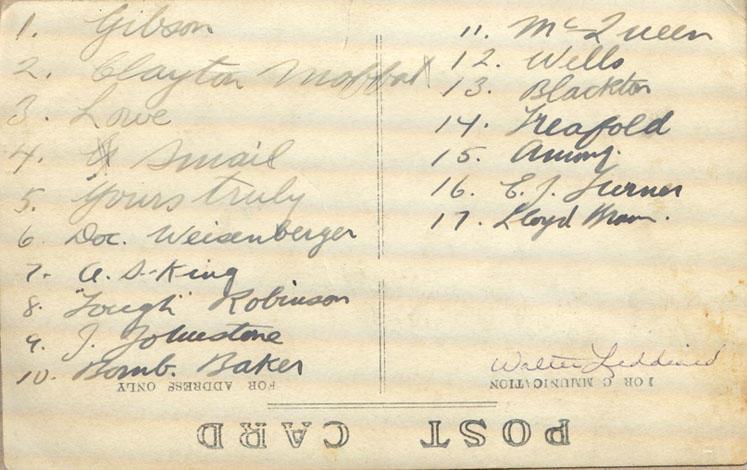 1. Gibson
2. Clayton Moffat
3. Lowe
4. Smail
5. Yours truly
6. Doc. Weisenberger
7. A. S. King
8. "Tough" Robinson
9. J. Johnstone
10. Bomb. Baker
11. McQueen
12. Wells
13. Blackton
14. Treafold
15.
16. E. J. Turner
17. Lloyd
Walter
FOR ADDRESS ONLY
FOR C MMUNICATION
POST CARD